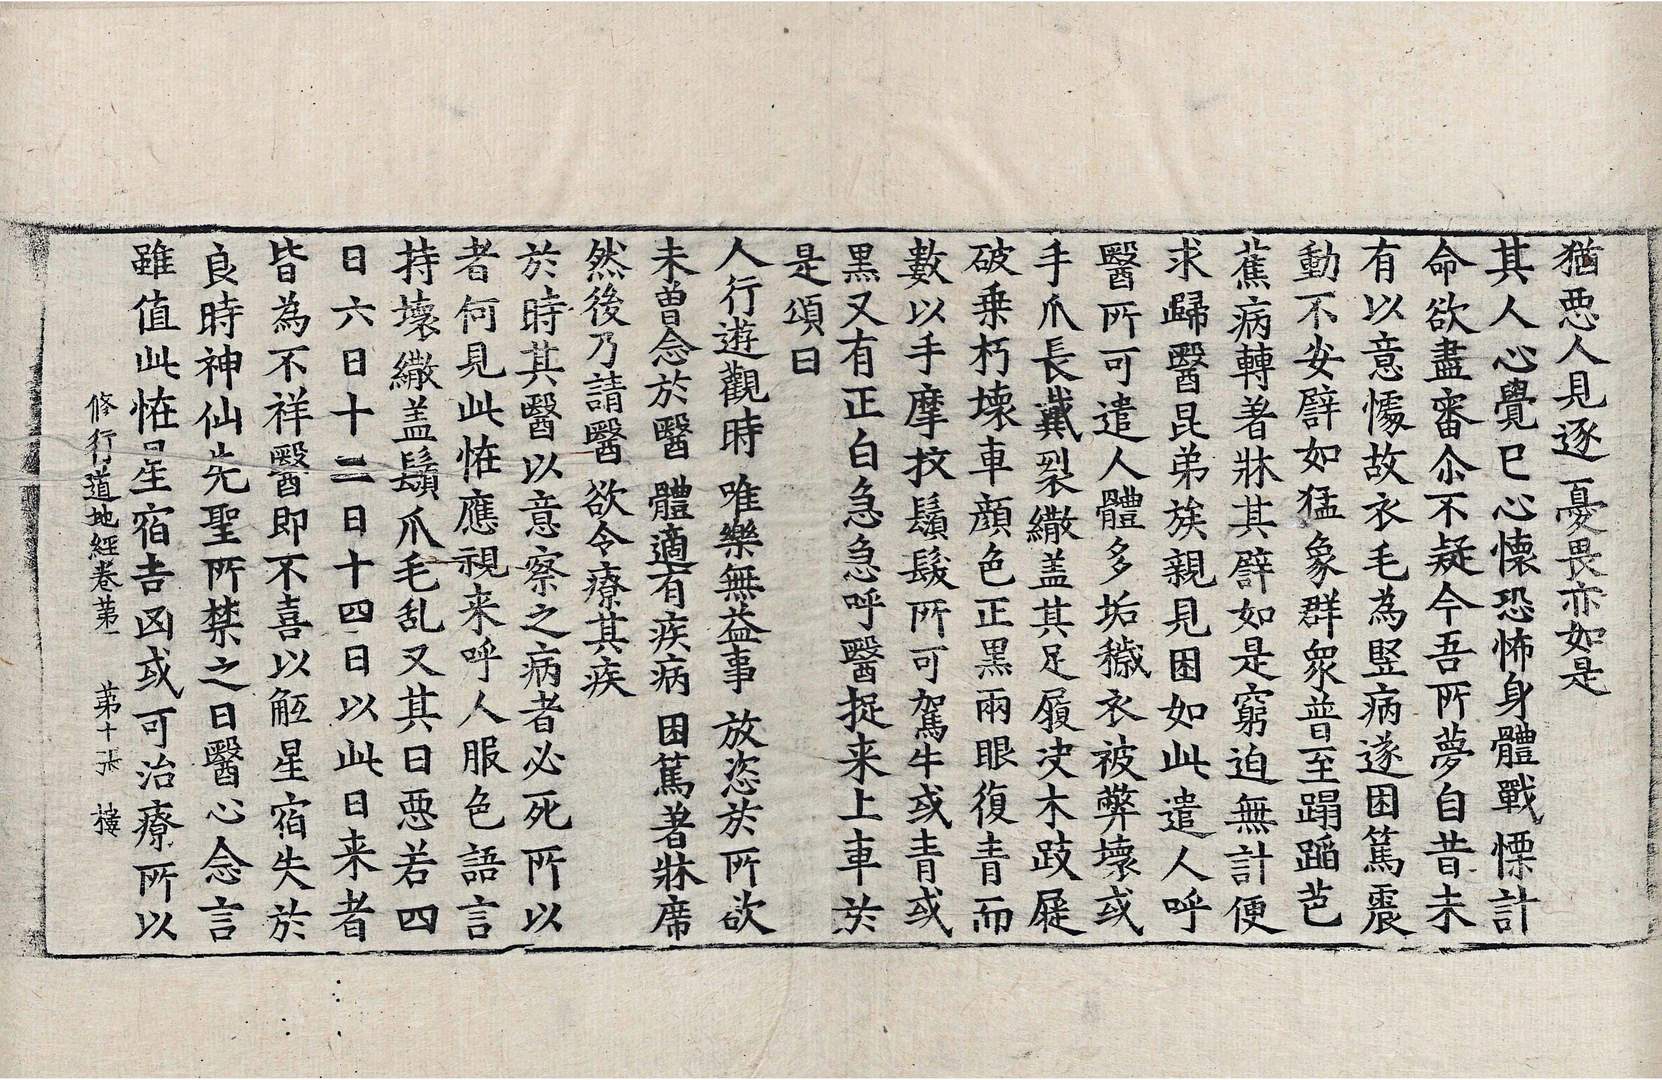 猶惡人見逐 憂畏亦如是
其人心覺已心懷恐怖身體戰慄計
命欲盡審尒不疑今吾所夢自昔未
有以意懅故衣毛為竪病遂困篤震
動不安譬如猛象群衆普至蹋蹈芭
蕉病轉著牀其譬如是窮迫無計便
求歸醫昆弟族親見困如此遣人呼
醫所可遣人體多垢穢衣被弊壞或
手爪長戴裂繖盖其足履決木跂屣
破乗朽壞車顔色正黒兩眼復青而
數以手摩抆鬚髮所可駕牛或青或
黒又有正白急急呼醫捉来上車於
是頌曰
人行遊觀時 唯樂無益事 放恣於所欲
未曽念於醫 體適有疾病 困篤著牀席
然後乃請醫 欲令療其疾
於時其醫以意察之病者必死所以
者何見此恠應視来呼人服色語言
持壞繖盖鬚爪毛乱又其日惡若四
日六日十二日十四日以此日来者
皆為不祥醫即不喜以觝星宿失於
良時神仙先聖所禁之日醫心念言
雖值此恠星宿吉凶或可治療所以
修行道地經卷第一 第十張 樓